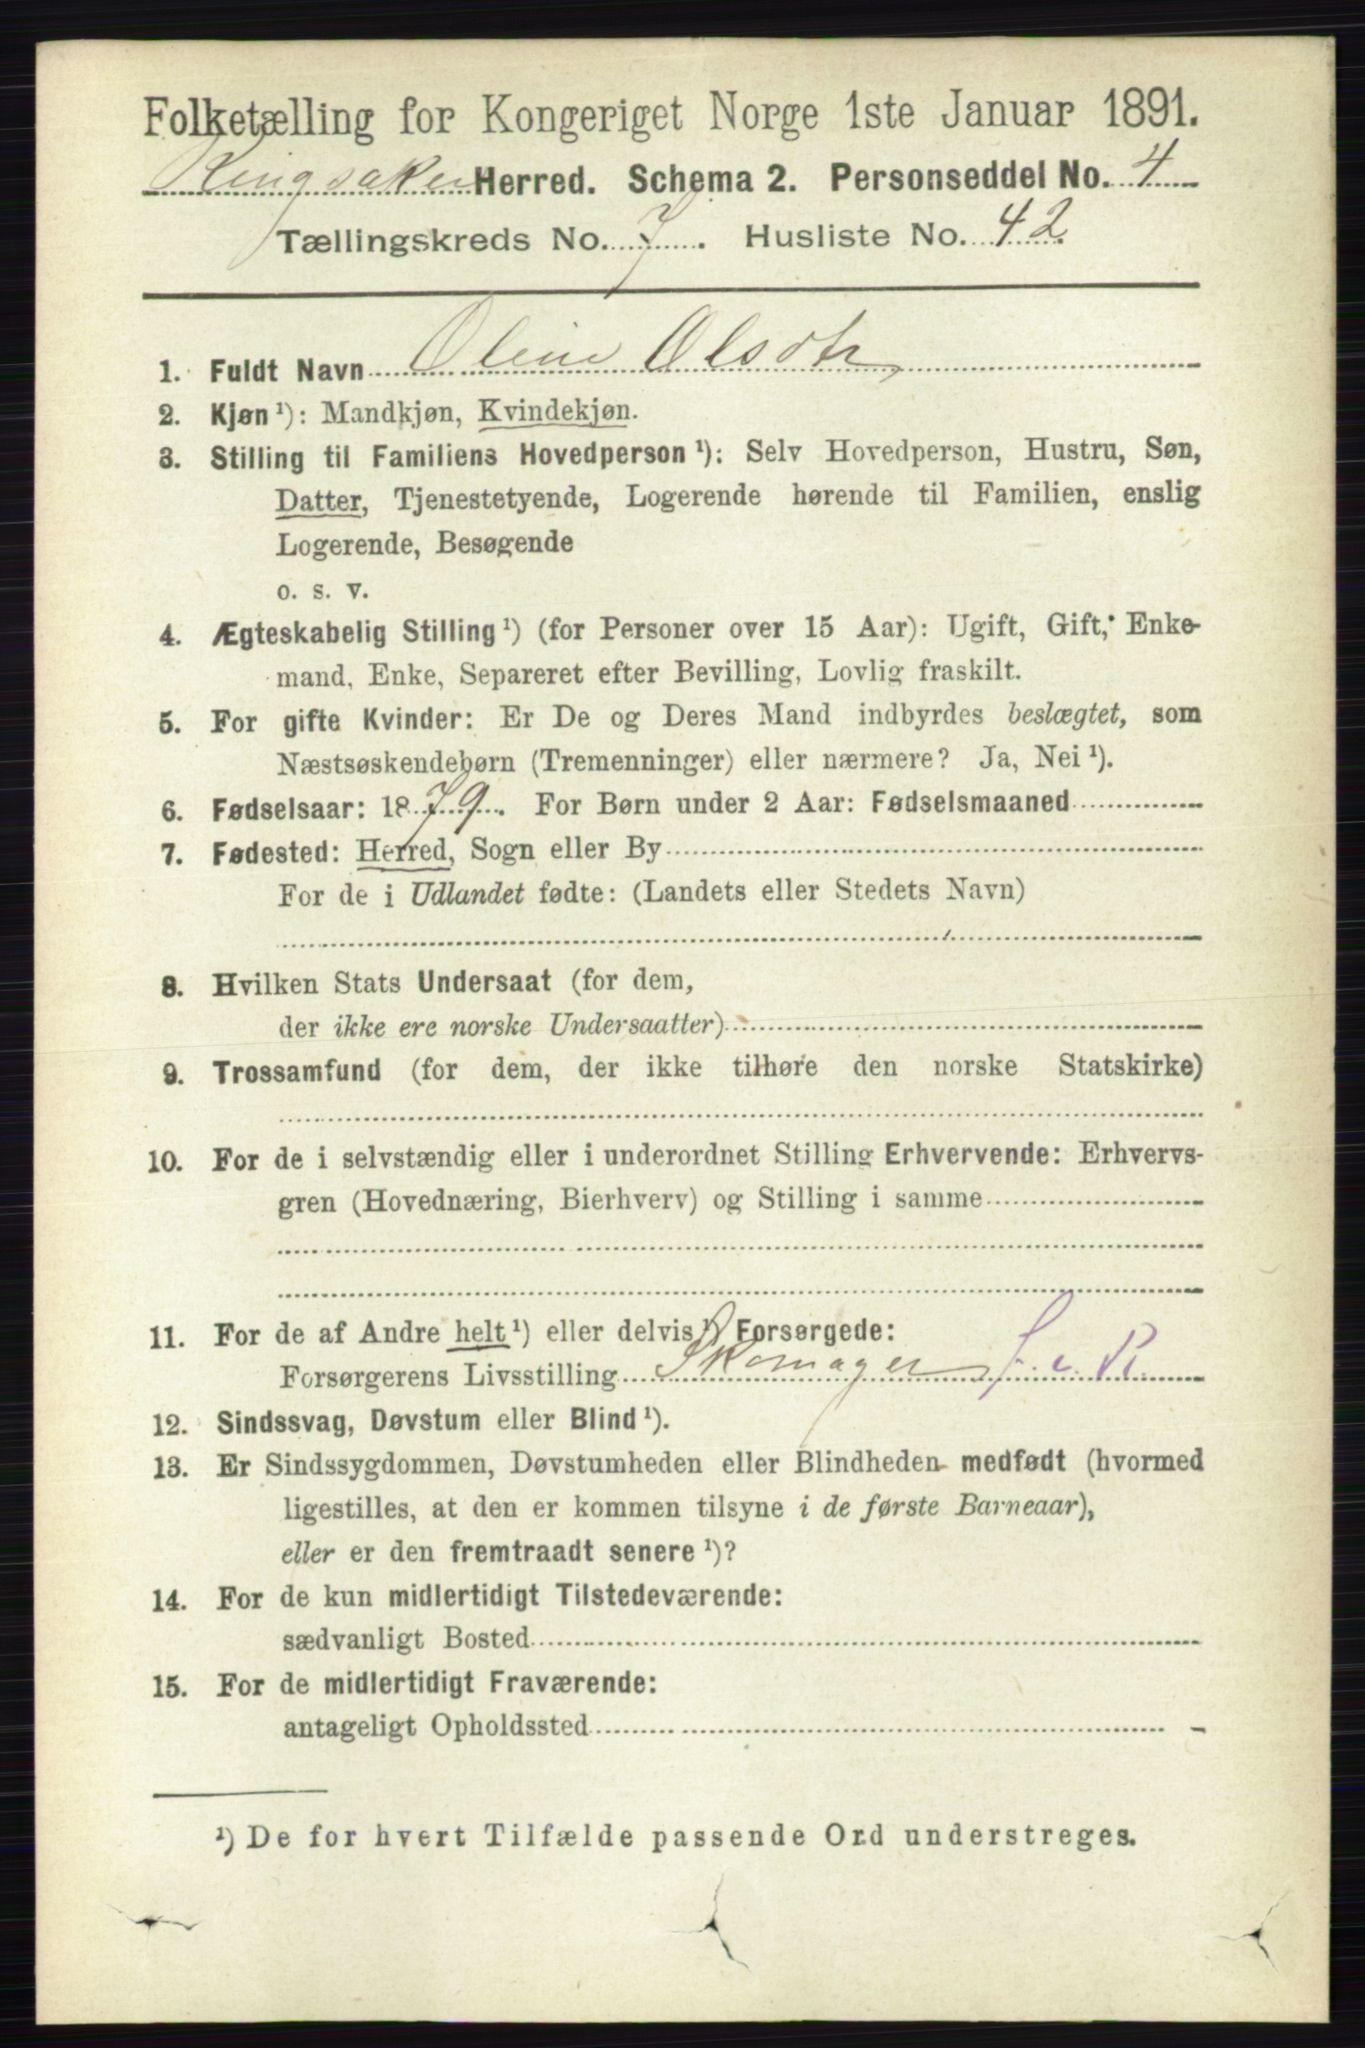 Folketælling for Kongeriget Norge 1ste Januar 1891.
Ringsaker Herred. Schema 2. Personseddel No. 4
Tællingskreds No. 7. Husliste No. 42.
1. Fuldt Navn Oline Olsdtr,
2. Kjøn ¹): Mandkjøn, Kvindekjøn.
3. Stilling til Familiens Hovedperson ¹): Selv Hovedperson, Hustru, Søn,
Datter, Tjenestetyende, Logerende hørende til Familien, enslig
Logerende, Besøgende
o. s. v.
4. Ægteskabelig Stilling ¹) (for Personer over 15 Aar): Ugift, Gift, Enke-
mand, Enke, Separeret efter Bevilling, Lovlig fraskilt.
5. For gifte Kvinder: Er De og Deres Mand indbyrdes beslægtet, som
Næstsøskendebørn (Tremenninger) eller nærmere? Ja, Nei ¹).
6. Fødselsaar: 1879. For Børn under 2 Aar: Fødselsmaaned
7. Fødested: Herred, Sogn eller By
For de i Udlandet fødte: (Landets eller Stedets Navn)
8. Hvilken Stats Undersaat (for dem,
der ikke ere norske Undersaatter)
9. Trossamfund (for dem, der ikke tilhøre den norske Statskirke)
10. For de i selvstændig eller i underordnet Stilling Erhvervende: Erhvervs-
gren (Hovednæring, Bierhverv) og Stilling i samme
11. For de af Andre helt ¹) eller delvis ¹) Forsørgede:
Forsørgerens Livsstilling Skomager
12. Sindssvag, Døvstum eller Blind ¹).
13. Er Sindssygdommen, Døvstumheden eller Blindheden medfødt (hvormed
ligestilles, at den er kommen tilsyne i de første Barneaar),
eller er den fremtraadt senere ¹)?
14. For de kun midlertidigt Tilstedeværende:
sædvanligt Bosted
15. For de midlertidigt Fraværende:
antageligt Opholdssted
¹) De for hvert Tilfælde passende Ord understreges.